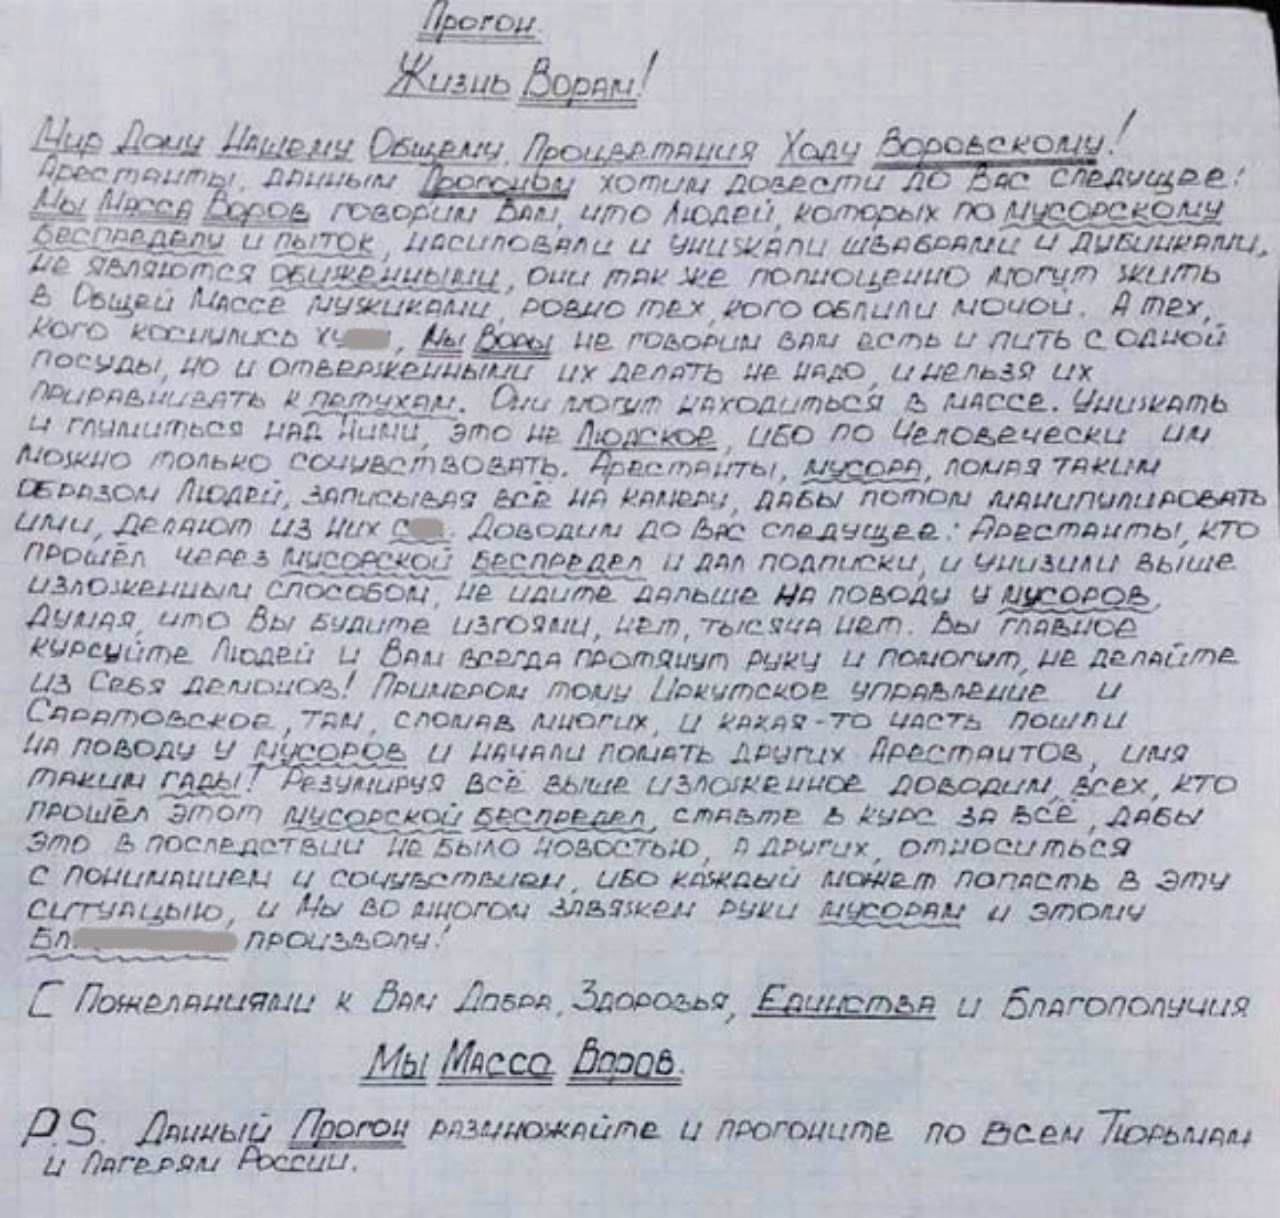 Прогон.
Жизнь Ворам!
Мир Дому Нашему Общему, Процветания Ходу Воровскому!
Арестанты, данным Прогоном хотим довести до Вас следущее:
Мы Масса Воров говорим Вам, что Людей, которых по мусорскому
беспределу и пыток, насиловали и унижали швабрами и дубинками,
не являются обиженными, они так же полноценно могут жить
в Общей Массе мужиками, ровно тех, кого облили мочой. А тех,
кого коснулись ху, Мы Воры не говорим вам есть и пить с одной
посуды, но и отверженными их делать не надо, и нельзя их
приравнивать к петухам. Они могут находиться в массе. Унижать
и глумиться над Ними, это не Людское, ибо по Человечески им
можно только сочувствовать. Арестанты, мусора, ломая таким
образом Людей, записывая всё на камеру, дабы потом манипулировать
ими, делают из них с. Доводим до Вас следущее: Арестанты, кто
прошёл через мусорской беспредел и дал подписки, и унизили выше
изложенным способом, не идите дальше на поводу у мусоров,
думая, что Вы будите изгоями, нет, тысяча нет. Вы главное
курсуйте Людей и Вам всегда протянут руку и помогут, не делайте
из Себя демонов! Примером тому Иркутское управление и
Саратовское, там, сломав многих, и какая-то часть пошли
на поводу у мусоров и начали ломать других Арестантов, имя
таким гады! Резумируя всё выше изложенное доводим, всех, кто
прошёл этот мусорской беспредел, ставте в курс за всё, дабы
это в последствии не было новостью, а других, относиться
с пониманием и сочувствием, ибо каждый может попасть в эту
ситуацыю, и Мы во многом завяжем руки мусорам и этому
Бл произволу!
С Пожеланиями к Вам Добра, Здоровья, Единства и Благополучия
Мы Масса Воров.
P.S. Данный Прогон размножайте и прогоните по всем Тюрьмам
и Лагерям России.